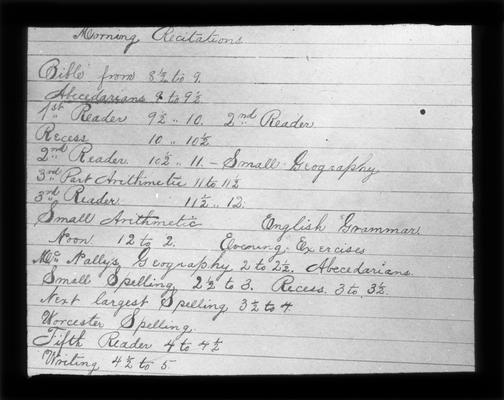 Morning Recitations
Bible from 8½ to 9.
Abecedarians 9 to 9½
1st Reader 9½ " 10. 2nd Reader
Recess 10 " 10½
2nd Reader 10½ " 11. - Small Geography
3rd Part Arithmetic 11 to 11½
3rd Reader 11½ " 12.
Small Arithmetic English Grammar
Noon 12 to 2. Evening Exercises
Mc. Nally's Geography 2 to 2½. Abecedarians.
Small Spelling 2½ to 3. Recess 3 to 3½.
Next largest Spelling 3½ to 4.
Worcester Spelling.
Fifth Reader 4 to 4½
Writing 4½ to 5.